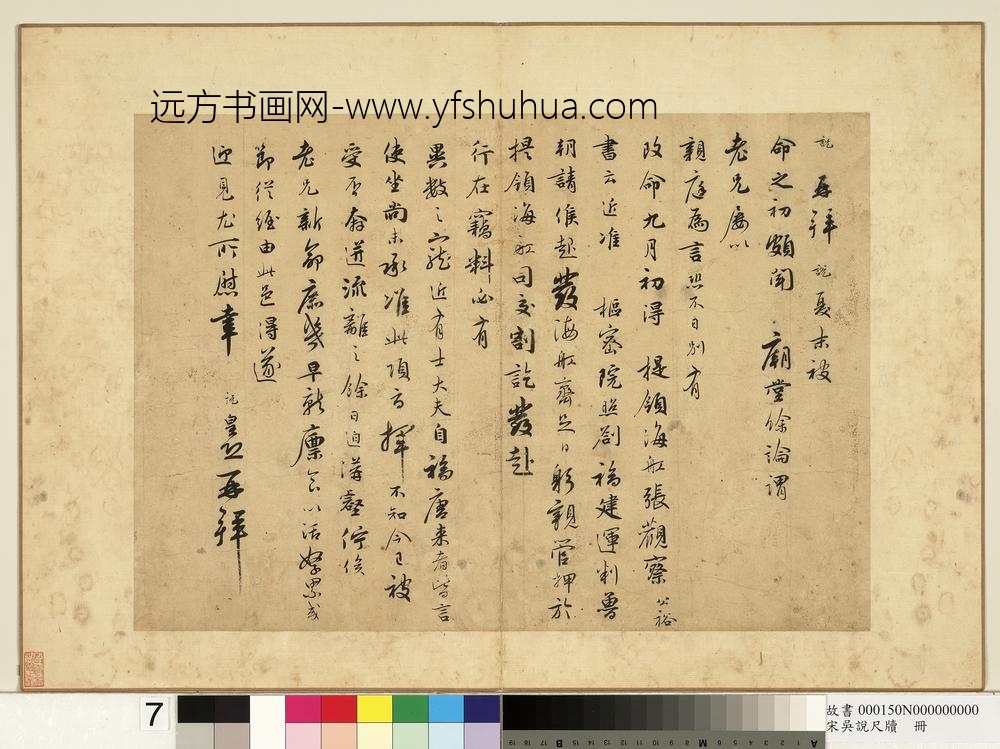 远方书画网-www.yfshuhua.com
說 再拜 說夏末被
命之初頗聞 廟堂餘論謂
老兄屢以
親庭為言恐不日別有
改命九月初得 提領海舡張觀察公裕
書云近准 樞密院照劄福建運判魯
朝請候起發海舡齊足日躬親管押於
提領海舡司交割訖發赴
行在竊料必有
異數之寵近有士大夫自福唐來者皆言
使坐尚未承准此項指揮不知今已被
受否奔迸流離之餘日迫溝壑佇俟
老兄新命庶幾早就廩食以活孥累或
節從經由此邑得遂
迎見尤所慰幸
說皇恐再拜
7
故書 000150N000000000
宋吳說尺牘 冊